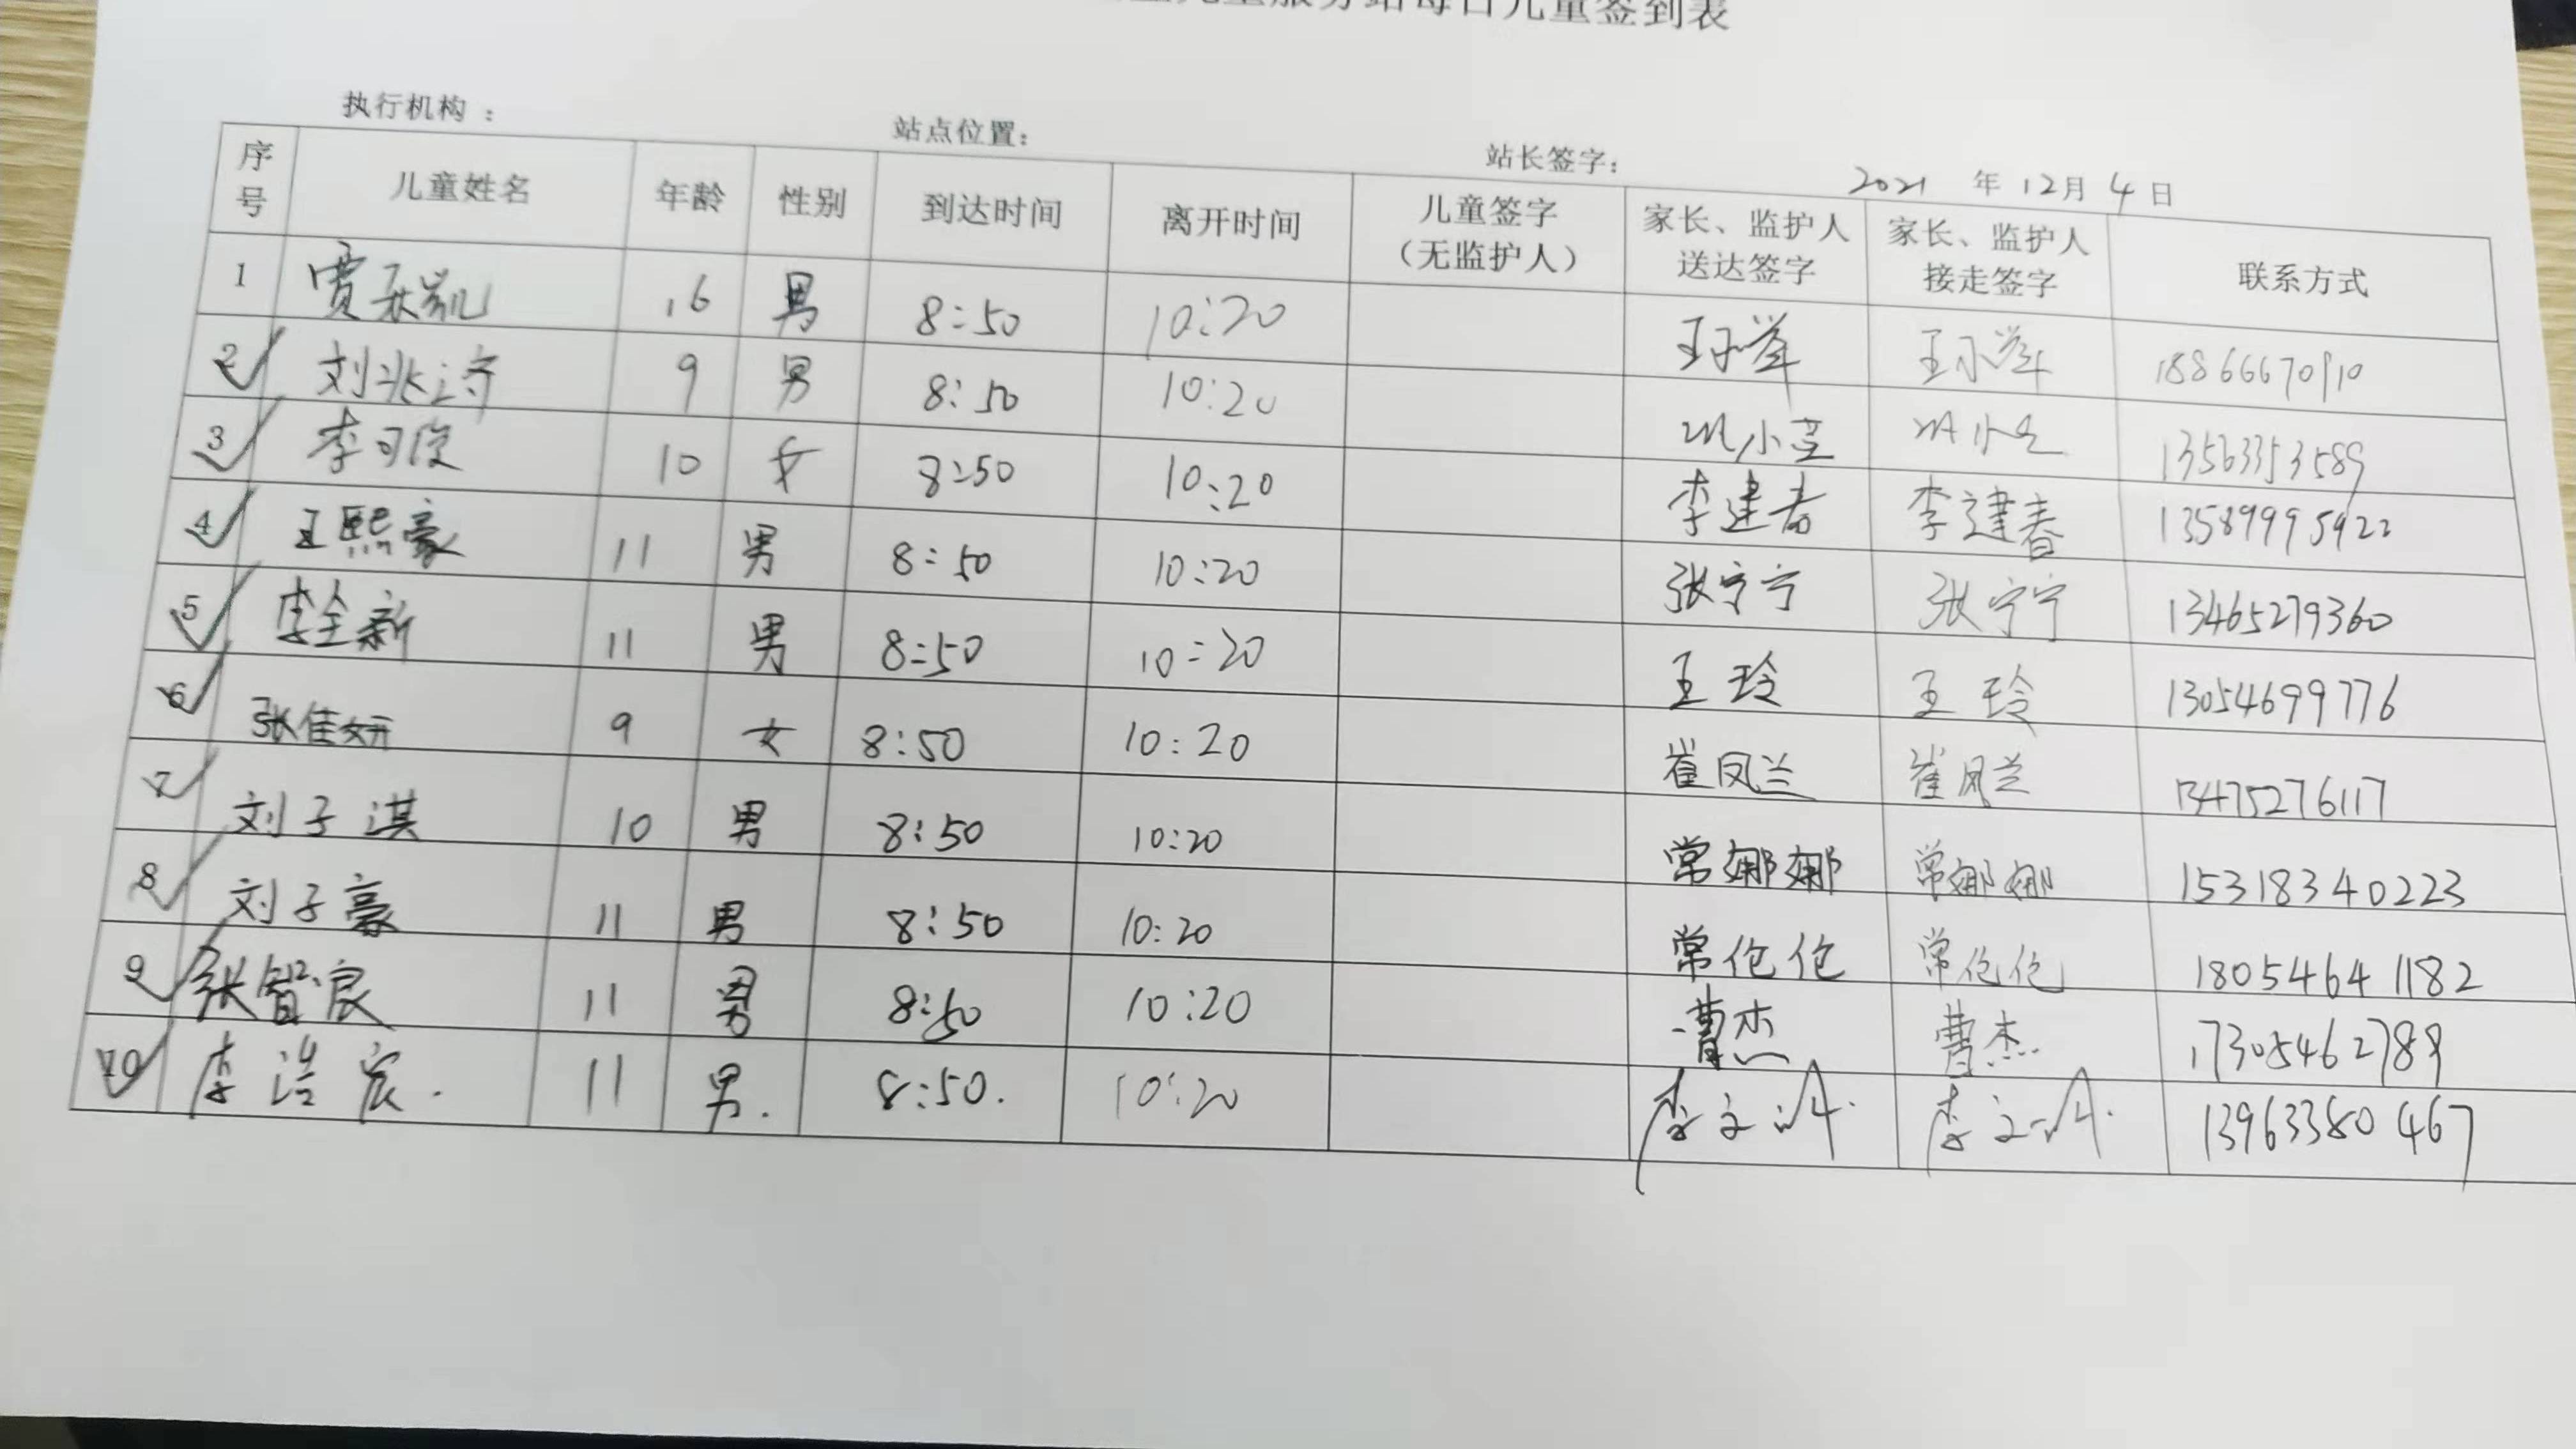 儿童服务站每日儿童签到表
执行机构： 站点位置： 站长签字： 2021 年 12月 4 日
序号 儿童姓名 年龄 性别 到达时间 离开时间 儿童签字（无监护人） 家长、监护人送达签字 家长、监护人接走签字 联系方式
1 贾 16 男 8:50 10:20 王 王 18866670910
2 刘兆 9 男 8:50 10:20 小 小 13563353589
3 李可俊 10 女 8:50 10:20 李建春 李建春 13589995922
4 王熙豪 11 男 8:50 10:20 张宁宁 张宁宁 13465279360
5 李全新 11 男 8:50 10:20 王玲 王玲 13054699776
6 张佳妍 9 女 8:50 10:20 崔凤兰 崔凤兰 13475276117
7 刘子淇 10 男 8:50 10:20 常娜娜 常娜娜 15318340223
8 刘子豪 11 男 8:50 10:20 常伦伦 常伦伦 18054641182
9 张智良 11 男 8:50 10:20 曹杰 曹杰 17305462789
10 李浩宸. 11 男. 8:50. 10:20 李文 李文 13963380467